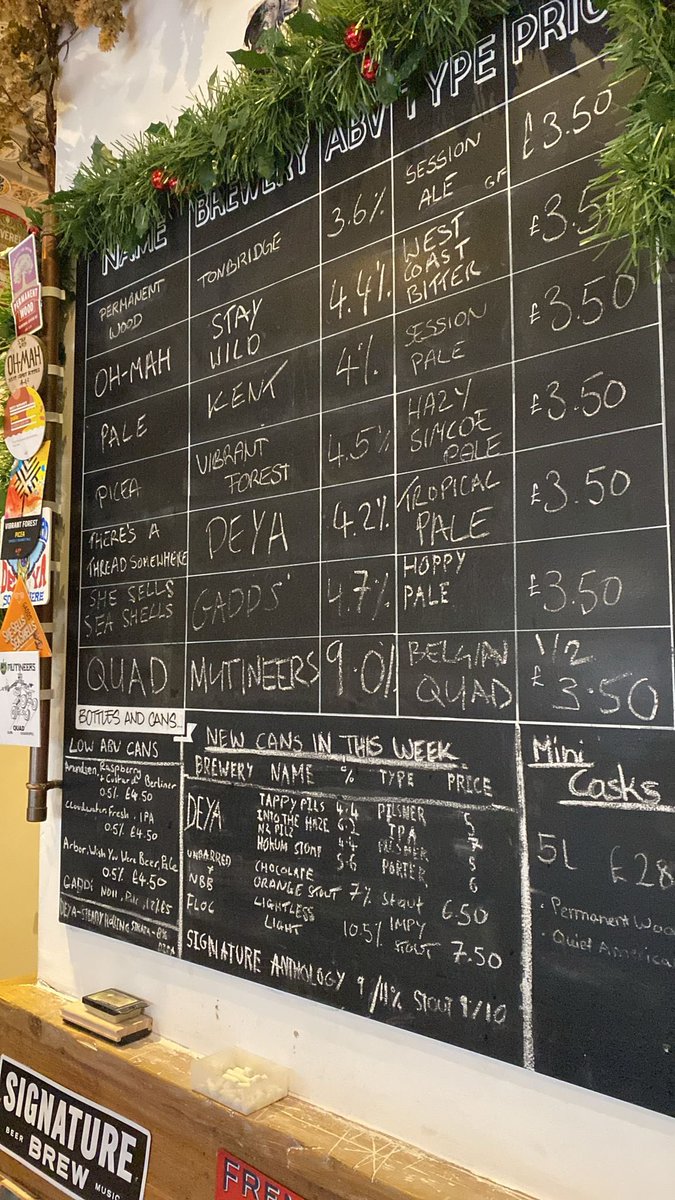 NAME BREWERY ABV TYPE PRIC
PERMANENT WOOD TONBRIDGE 3.6% SESSION ALE GF £3.50
OH-MAH STAY WILD 4.4% WEST COAST BITTER £3.5
PALE KENT 4% SESSION PALE £3.50
PICEA VIBRANT FOREST 4.5% HAZY SIMCOE PALE £3.50
THERE'S A THREAD SOMEWHERE DEYA 4.2% TROPICAL PALE £3.50
SHE SELLS SEA SHELLS GADDS' 4.7% HOPPY PALE £3.50
QUAD MUTINEERS 9.0% BELGIAN QUAD 1/2 £3.50
BOTTLES AND CANS...
LOW ABV CANS
Amundsen, Raspberry
+ Custard Berliner
0.5% £4.50
Cloudwater Fresh, IPA
0.5% £4.50
Arbor, Wish You Were Beer, Pale
0.5% £4.50
GADDS
DEYA - STEADY ROLLING
NEW CANS IN THIS WEEK
BREWERY NAME % TYPE PRICE
DEYA TAPPY PILS 4.4 PILSNER 5
INTO THE HAZE 6.2 IPA 7
NZ PILZ 4.4 5
5.6 PORTER 6
UNBARRED
NBB CHOCOLATE
ORANGE STOUT 7% STOUT 6.50
FLOC LIGHTLESS
LIGHT 10.5% IMPY
STOUT 7.50
SIGNATURE ANTHOLOGY 9/11% STOUT 9/10
Mini
Casks
5L £28
· Permanent Woo
· Quiet America
PERMANENT WOOD
OH-MAH
VIBRANT FOREST
PICEA
DEYA
SHE SELLS
SEA SHELLS
MUTINEERS
QUAD
SIGNATURE
BEER BREW MUSIC
FRE